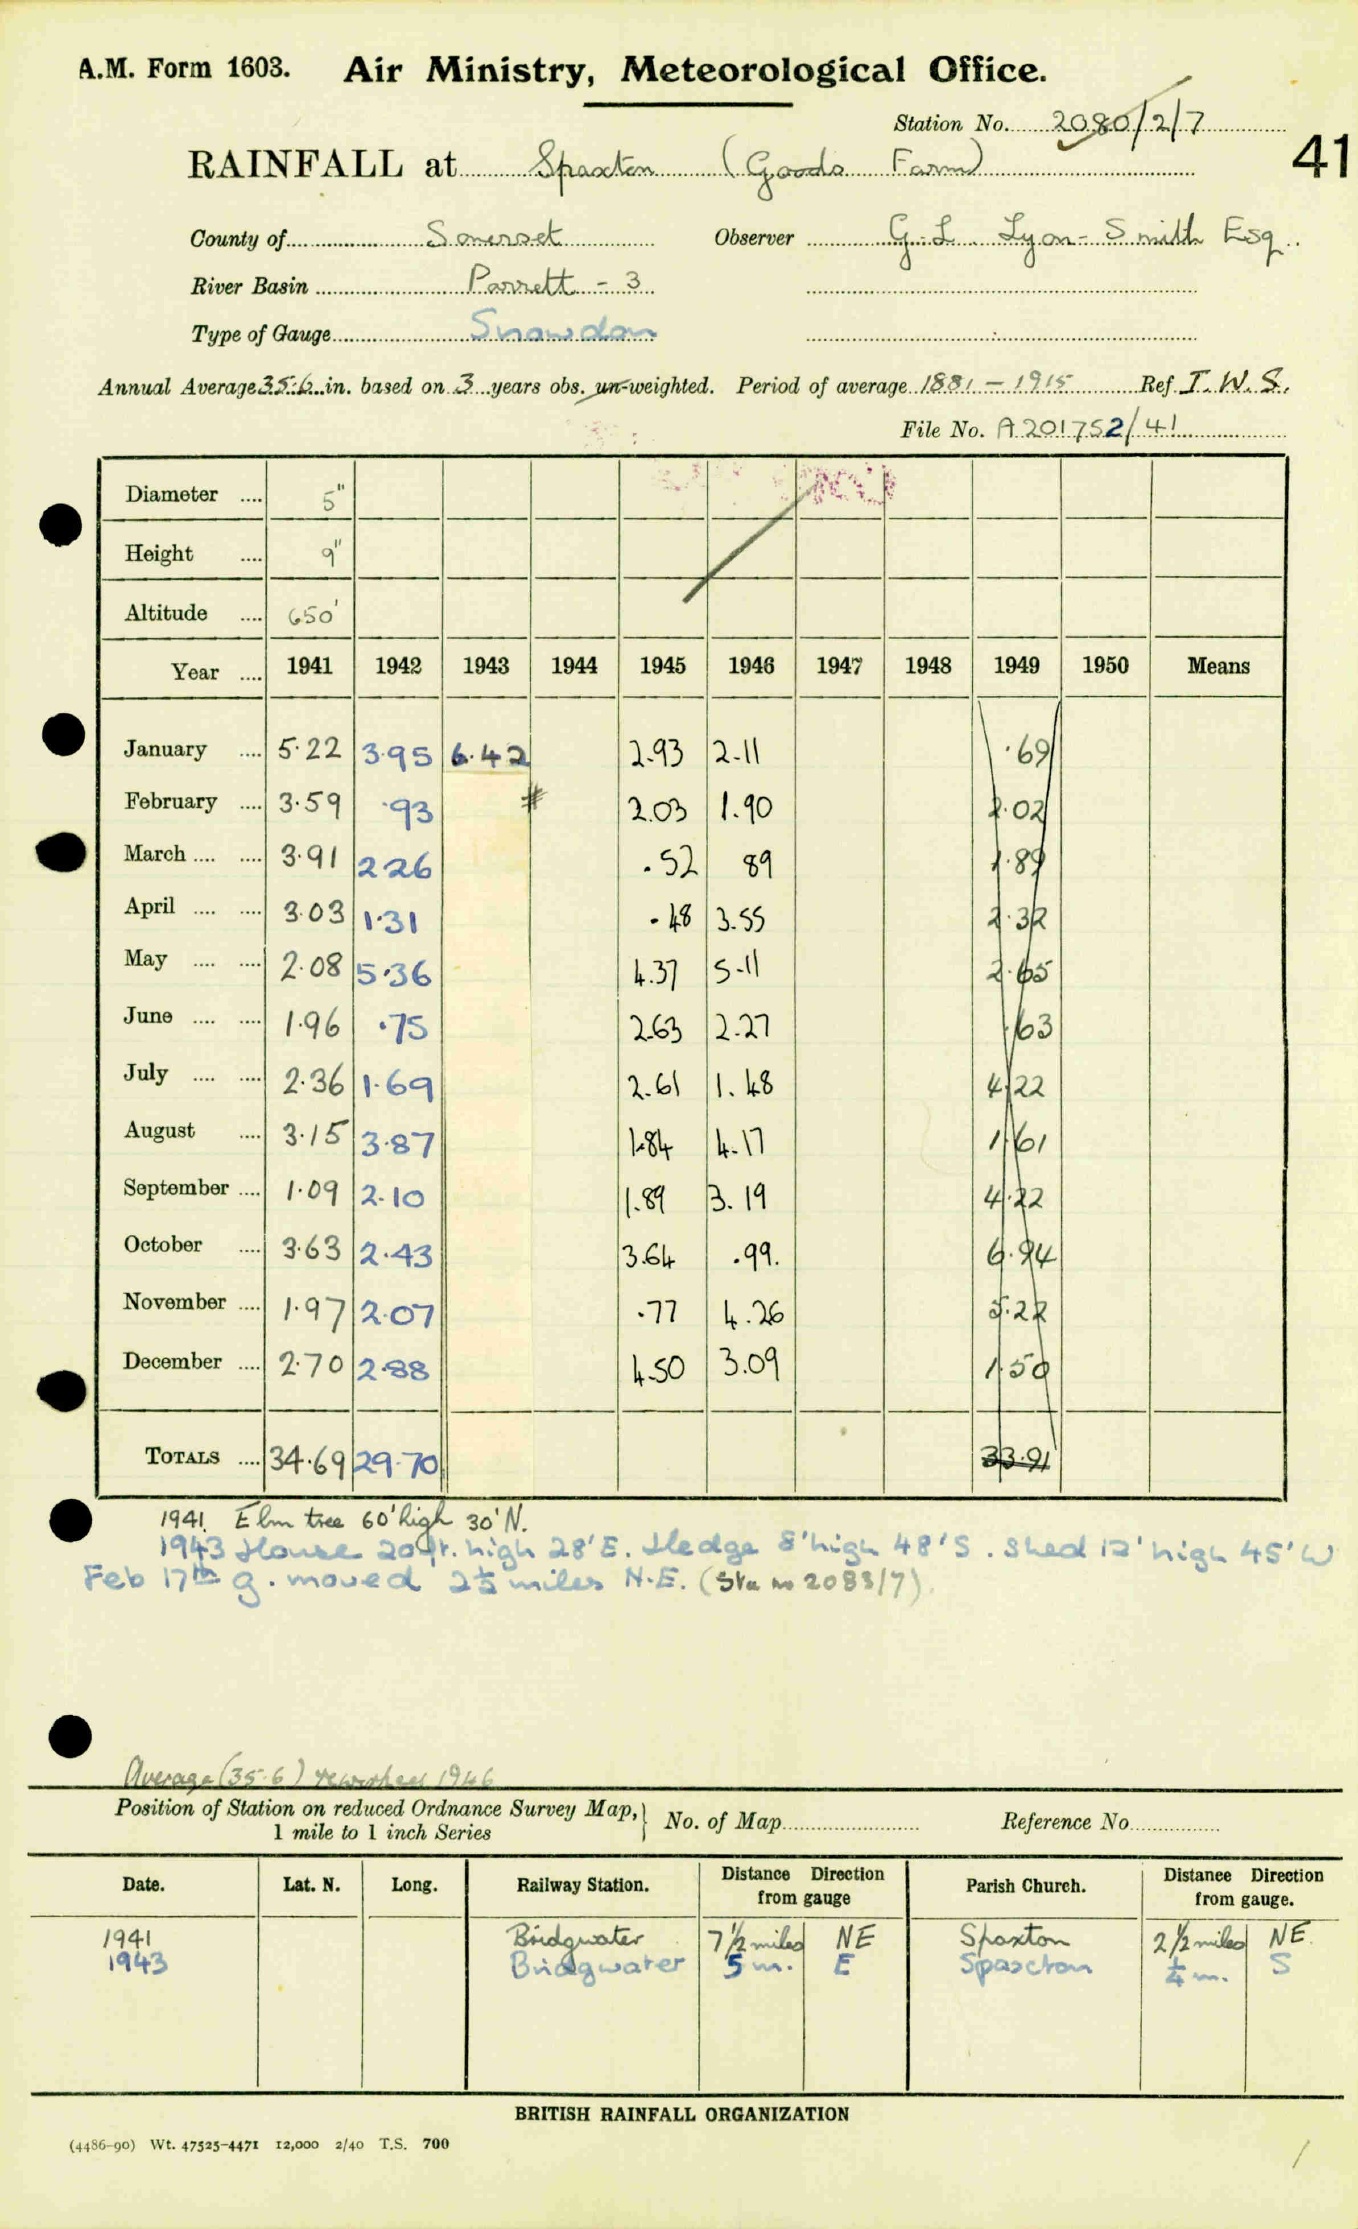 A.M. Form 1603. Air Ministry, Meteorological Office.
Station No. 2080/2/7
41
RAINFALL at Spaxton (Goods Farm)
County of Somerset Observer G. L. Lyon-Smith Esq.
River Basin Parrett - 3
Type of Gauge Snowdon
Annual Average 35.6 in. based on 3 years obs. un-weighted. Period of average 1881 - 1915 Ref I. W. S.
File No. A201752/41
Diameter .... 5"
Height .... 9"
Altitude .... 650'
Year .... 1941 1942 1943 1944 1945 1946 1947 1948 1949 1950 Means
January .... 5.22 3.95 6.42 2.93 2.11 .69
February .... 3.59 .93 # 2.03 1.90 2.02
March .... .... 3.91 2.26 .52 89 1.89
April .... .... 3.03 1.31 .48 3.55 2.32
May .... .... 2.08 5.36 4.37 5.11 2.65
June .... .... 1.96 .75 2.63 2.27 .63
July .... .... 2.36 1.69 2.61 1.48 4.22
August .... 3.15 3.87 1.84 4.17 1.61
September .... 1.09 2.10 1.89 3.19 4.22
October .... 3.63 2.43 3.64 .99. 6.94
November .... 1.97 2.07 .77 4.26 5.22
December .... 2.70 2.88 4.50 3.09 1.50
TOTALS .... 34.69 29.70 33.91
1941. Elm tree 60' high 30' N.
1943 House 20 ft. high 28' E. Hedge 8' high 48' S. Shed 12' high 45' W
Feb 17th g. moved 2½ miles N.E. (Sta no 2083/7)
Average (35.6) 1946
Position of Station on reduced Ordnance Survey Map, } No. of Map Reference No
1 mile to 1 inch Series
Date. Lat. N. Long. Railway Station. Distance Direction from gauge Parish Church. Distance Direction from gauge.
1941 Bridgwater 7½ miles NE Spaxton 2½ miles NE.
1943 Bridgwater 5 m. E Spaxton ¼ m. S
BRITISH RAINFALL ORGANIZATION
(4486-90) Wt. 47525-4471 12,000 2/40 T.S. 700